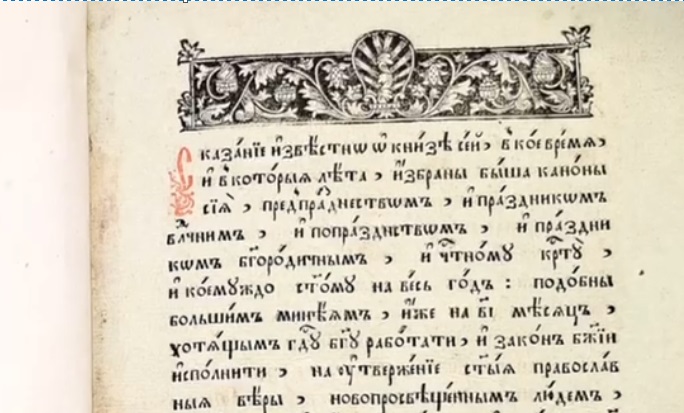 Сказа́нїе и҆звѣ́стнѡ ѡ҆ кни́зѣ се́й, в̾ ко́е вре́мѧ,
и҆ в̾ кото́рыѧ лѣ́та, и҆збраны бы́ша кано́ны
сїѧ̀, предпра́днествѡмъ, и҆ пра́здникѡмъ
влⷣчнимъ, и҆ попра́зднствѡмъ, и҆ пра́здни
кѡмъ бг҃оро́дичнымъ, и҆ чⷭ҇тно́му крⷭ҇ту̀,
и҆ коемꙋждо ст҃о́му на ве́сь го́дъ: подо́бны
больши́мъ мине́ѧмъ, и҆́же на в҃і мѣ́сѧцъ,
хотѧ́щымъ гдⷭ҇ꙋ̀ бг҃ꙋ рабо́тати, и҆ зако́нъ бж҃їи
и҆спо́лнити, на ᲂу҆твержéнїе ст҃ы́ѧ правосла́в
ныѧ вѣ́ры, новопросвѣщéннымъ лю́демъ,